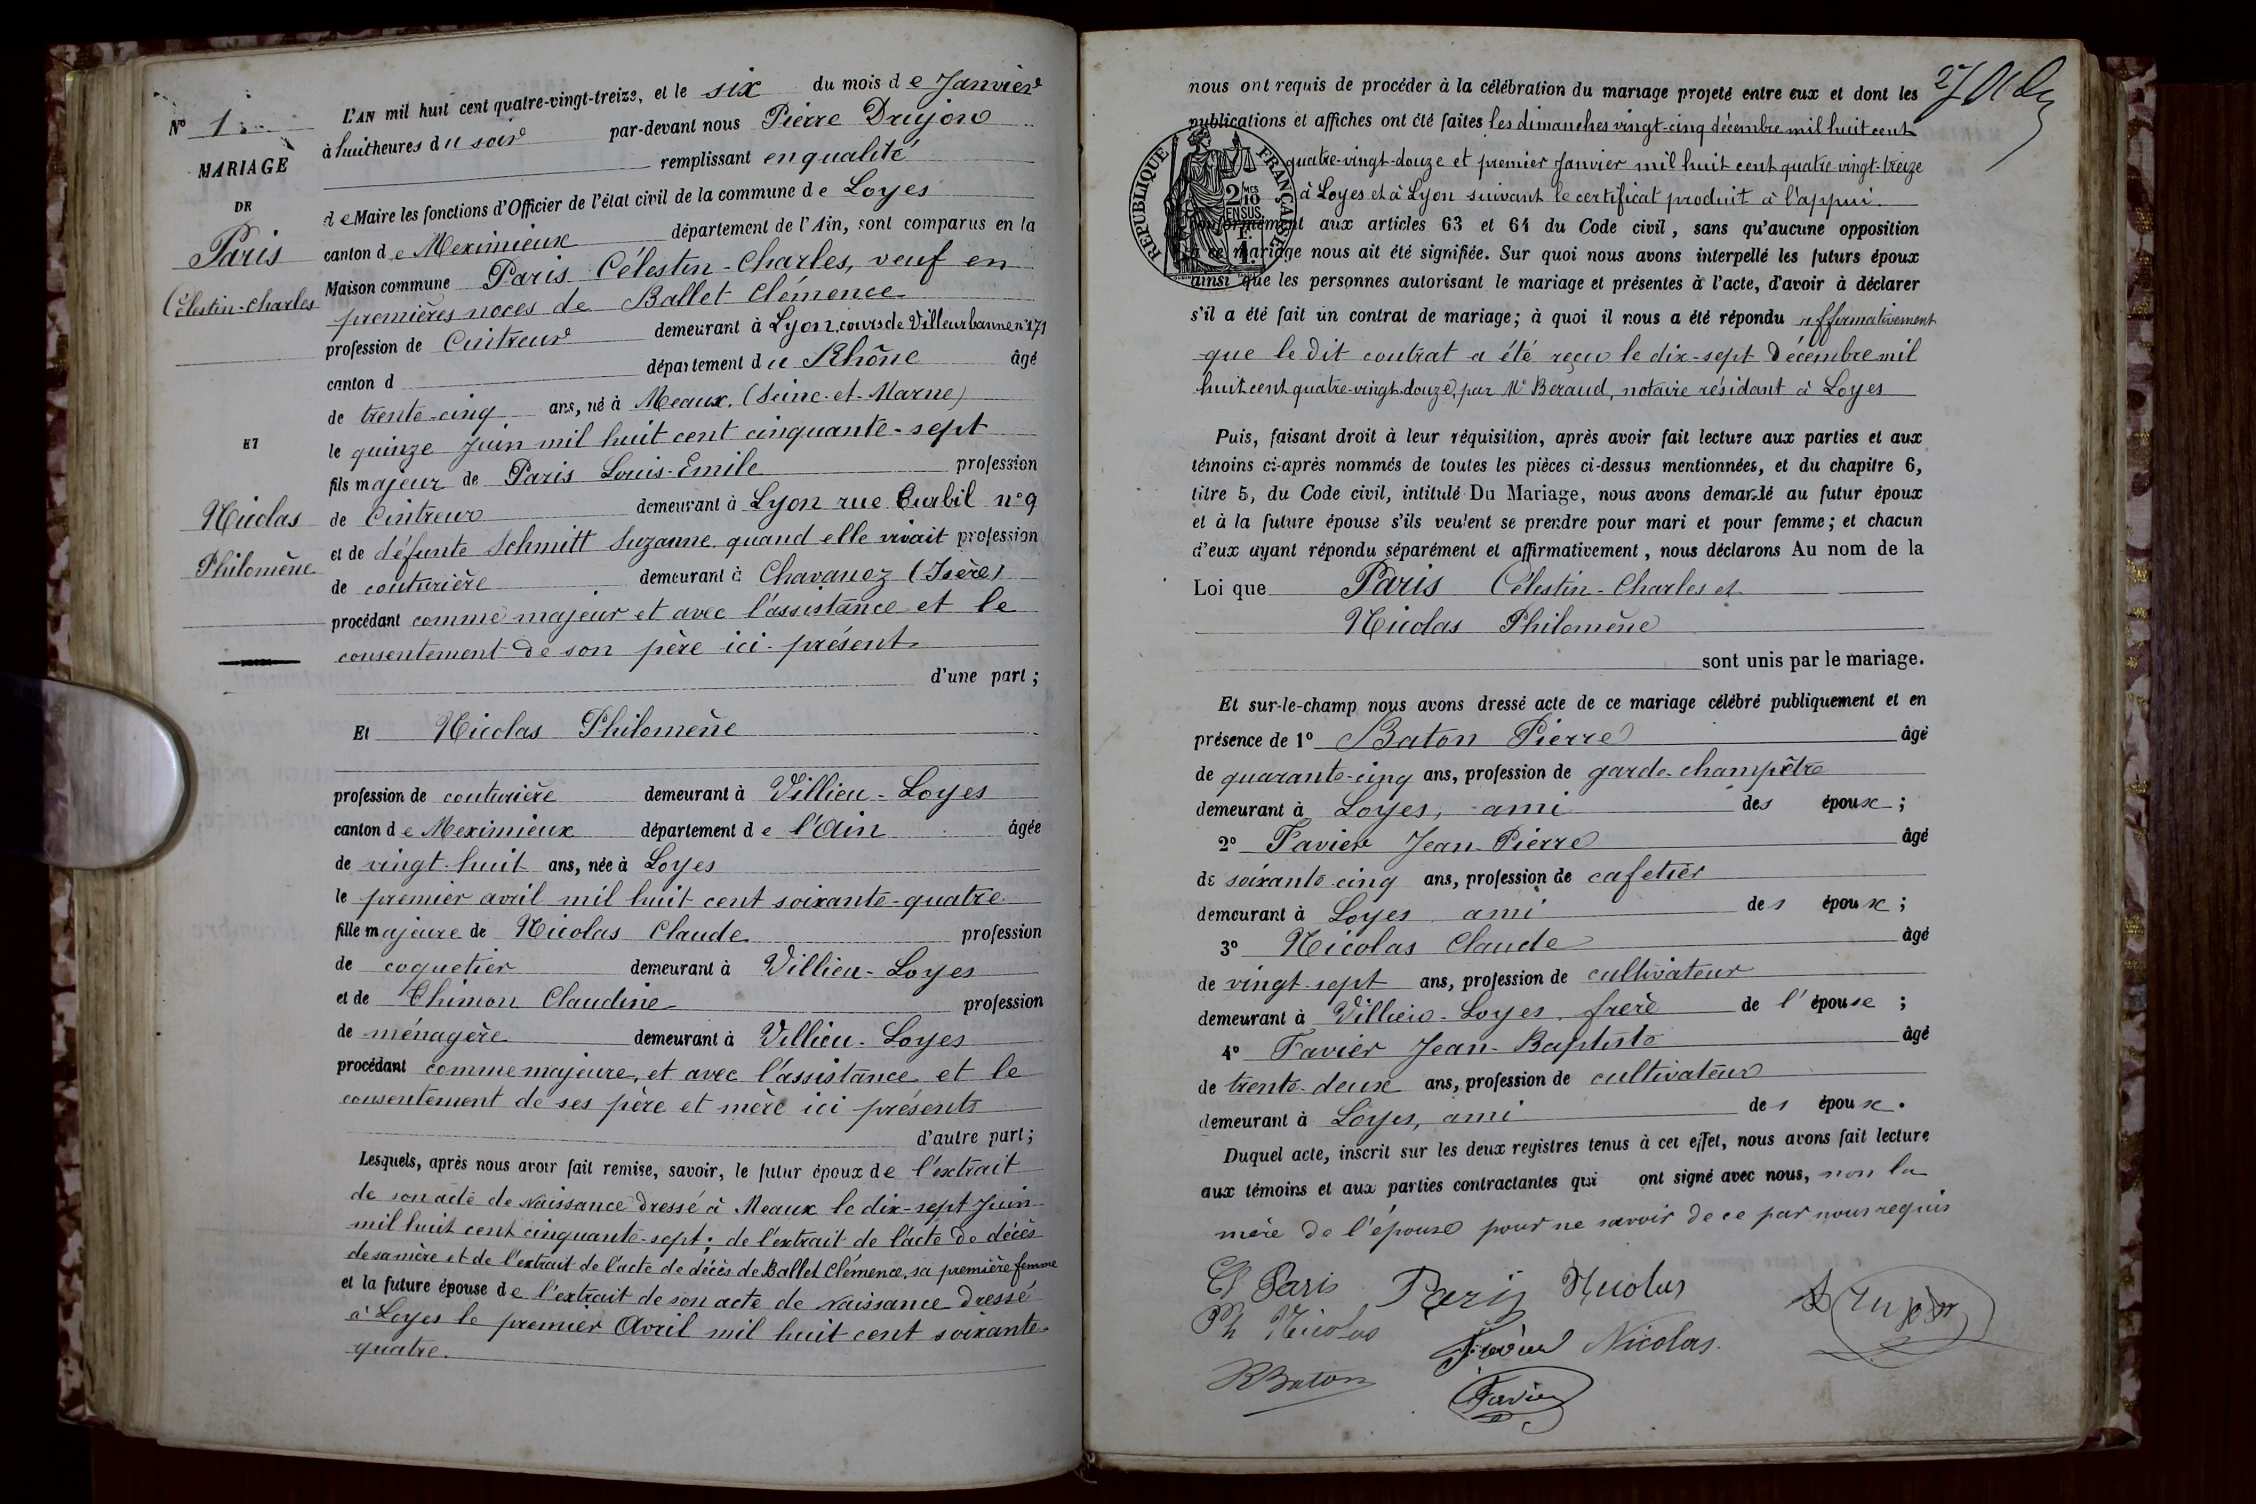 Nº 1
MARIAGE
DE
Paris
Célestin-Charles
ET
Nicolas
Philomène
L'AN mil huit cent quatre-vingt-treize, et le six du mois de Janvier
à huit heures du soir par-devant nous Pierre Drujon
remplissant en qualité
de Maire les fonctions d'Officier de l'état civil de la commune de Loyes
canton de Meximieux département de l'Ain, sont comparus en la
Maison commune Paris Célestin-Charles, veuf en
premières noces de Ballet Clémence
profession de Cintreur demeurant à Lyon, cours de Villeurbanne nº 171
canton d département du Rhône âgé
de trente-cinq ans, né à Meaux, (Seine-et-Marne)
le quinze Juin mil huit cent cinquante-sept
fils majeur de Paris Louis-Emile profession
de Cintreur demeurant à Lyon rue Curbil nº 9
et de défunte Schmitt Suzanne quand elle vivait profession
de couturière demeurant à Chavanoz (Isère)
procédant comme majeur et avec l'assistance et le
consentement de son père ici présent
d'une part;
Et Nicolas Philomène
profession de couturière demeurant à Villieu-Loyes
canton de Meximieux département de l'Ain âgée
de vingt-huit ans, née à Loyes
le premier avril mil huit cent soixante-quatre
fille majeure de Nicolas Claude profession
de coquetier demeurant à Villieu-Loyes
et de Thimon Claudine profession
de ménagère demeurant à Villieu-Loyes
procédant comme majeure, et avec l'assistance et le
consentement de ses père et mère ici présents
d'autre part;
Lesquels, après nous avoir fait remise, savoir, le futur époux de l'extrait
de son acte de Naissance dressé à Meaux le dix-sept Juin
mil huit cent cinquante-sept; de l'extrait de l'acte de décès
de sa mère et de l'extrait de l'acte de décès de Ballet Clémence, sa première femme
et la future épouse de l'extrait de son acte de Naissance dressé
à Loyes le premier Avril mil huit cent soixante
quatre.
27
nous ont requis de procéder à la célébration du mariage projeté entre eux et dont les
publications et affiches ont été faites les dimanches vingt-cinq décembre mil huit cent
quatre-vingt-douze et premier Janvier mil huit cent quatre-vingt-treize
à Loyes et à Lyon suivant le certificat produit à l'appui.
conformément aux articles 63 et 64 du Code civil, sans qu'aucune opposition
à ce mariage nous ait été signifiée. Sur quoi nous avons interpellé les futurs époux
ainsi que les personnes autorisant le mariage et présentes à l'acte, d'avoir à déclarer
s'il a été fait un contrat de mariage; à quoi il nous a été répondu affirmativement
que le dit contrat a été reçu le dix-sept Décembre mil
huit cent quatre-vingt-douze, par Me Beraud, notaire résidant à Loyes
RÉPUBLIQUE FRANÇAISE
2 MES 10
EN SUS
1 F.
Puis, faisant droit à leur réquisition, après avoir fait lecture aux parties et aux
témoins ci-après nommés de toutes les pièces ci-dessus mentionnées, et du chapitre 6,
titre 5, du Code civil, intitulé Du Mariage, nous avons demandé au futur époux
et à la future épouse s'ils veulent se prendre pour mari et pour femme; et chacun
d'eux ayant répondu séparément et affirmativement, nous déclarons Au nom de la
Loi que Paris Célestin-Charles et
Nicolas Philomène
sont unis par le mariage.
Et sur-le-champ nous avons dressé acte de ce mariage célébré publiquement et en
présence de 1º Baton Pierre âgé
de quarante-cinq ans, profession de garde-champêtre
demeurant à Loyes, ami des époux;
2º Favier Jean-Pierre âgé
de soixante-cinq ans, profession de cafetier
demeurant à Loyes ami des époux;
3º Nicolas Claude âgé
de vingt-sept ans, profession de cultivateur
demeurant à Villieu-Loyes, frère de l'épouse;
4º Favier Jean-Baptiste âgé
de trente-deux ans, profession de cultivateur
demeurant à Loyes, ami des époux.
Duquel acte, inscrit sur les deux registres tenus à cet effet, nous avons fait lecture
aux témoins et aux parties contractantes qui ont signé avec nous, non la
mère de l'épouse pour ne savoir de ce par nous requis
Paris Paris Nicolas Drujon
Ph Nicolas Favier Nicolas
Baton Favier